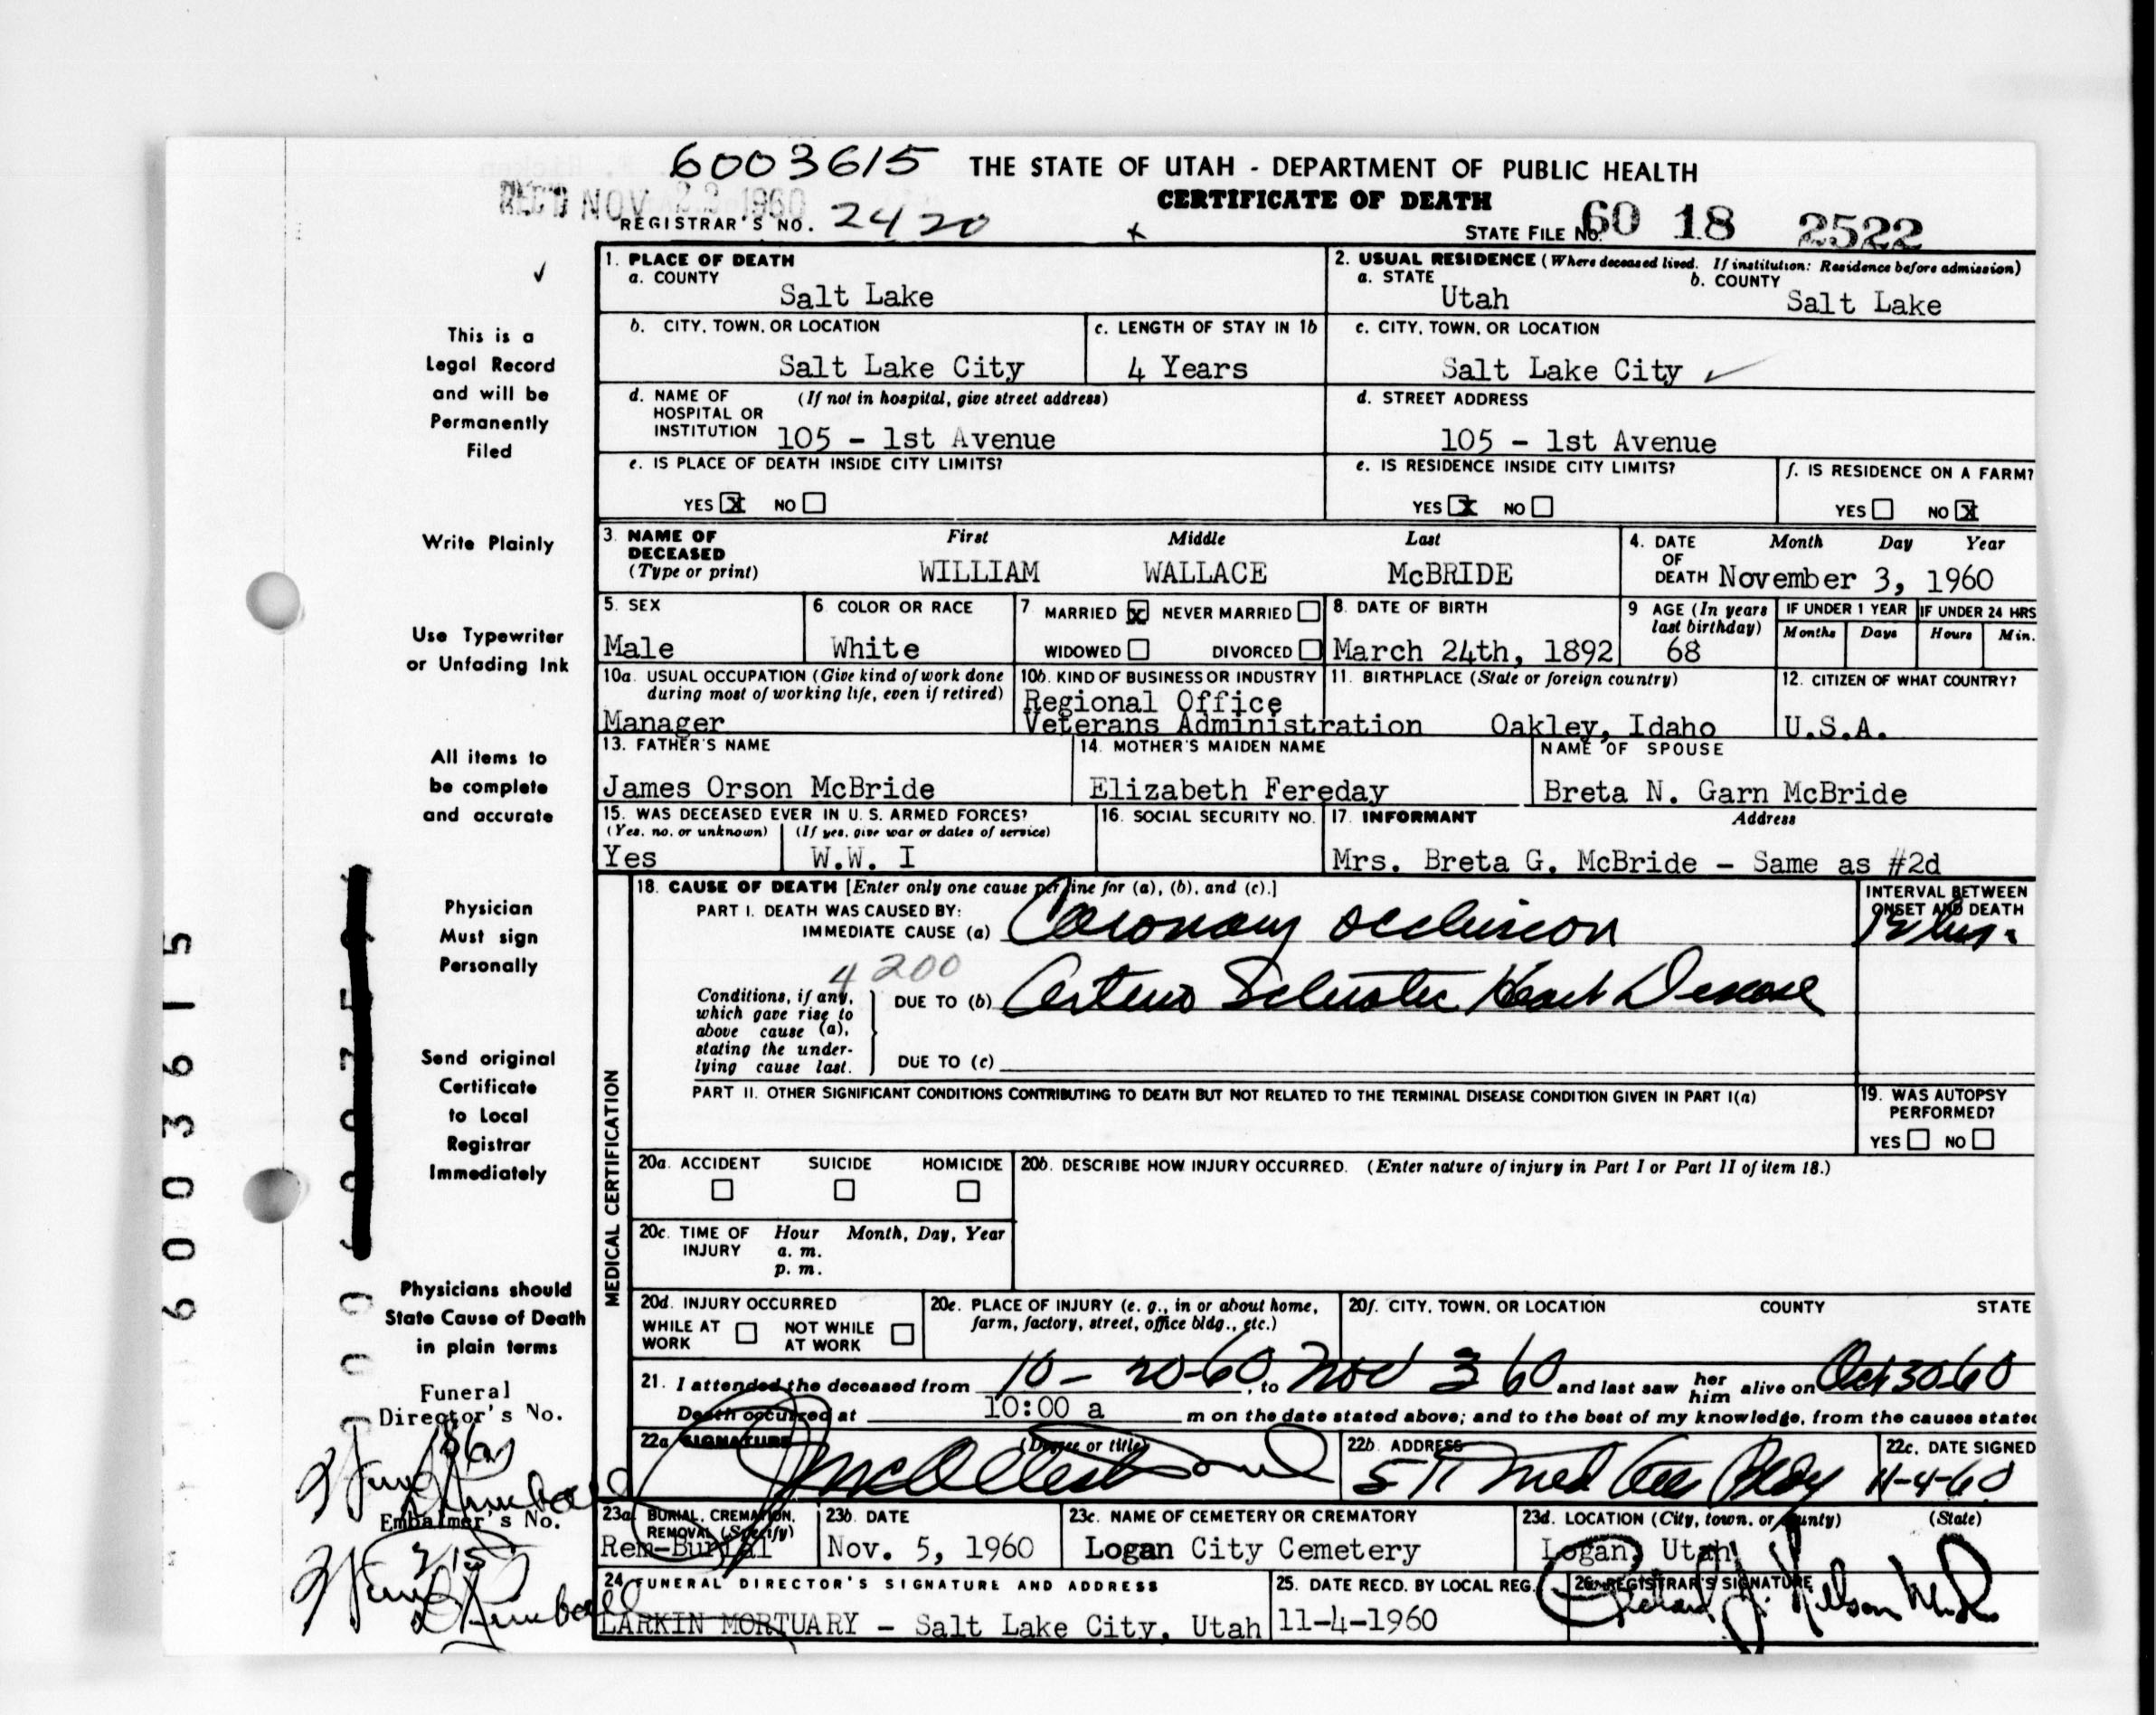 6003615 THE STATE OF UTAH - DEPARTMENT OF PUBLIC HEALTH
REC'D NOV 23 1960 CERTIFICATE OF DEATH
REGISTRAR'S NO. 2420 STATE FILE NO. 60 18 2522
1. PLACE OF DEATH
a. COUNTY
Salt Lake
2. USUAL RESIDENCE (Where deceased lived. If institution: Residence before admission)
a. STATE b. COUNTY
Utah Salt Lake
b. CITY, TOWN, OR LOCATION
Salt Lake City
c. LENGTH OF STAY IN 1b
4 Years
c. CITY, TOWN, OR LOCATION
Salt Lake City
d. NAME OF (If not in hospital, give street address)
HOSPITAL OR
INSTITUTION 105 - 1st Avenue
d. STREET ADDRESS
105 - 1st Avenue
e. IS PLACE OF DEATH INSIDE CITY LIMITS?
YES X NO
e. IS RESIDENCE INSIDE CITY LIMITS?
YES X NO
f. IS RESIDENCE ON A FARM?
YES NO X
3. NAME OF First Middle Last
DECEASED
(Type or print) WILLIAM WALLACE McBRIDE
4. DATE Month Day Year
OF
DEATH November 3, 1960
5. SEX
Male
6. COLOR OR RACE
White
7. MARRIED X NEVER MARRIED
WIDOWED DIVORCED
8. DATE OF BIRTH
March 24th, 1892
9 AGE (In years
last birthday)
68
IF UNDER 1 YEAR IF UNDER 24 HRS
Months Days Hours Min.
10a. USUAL OCCUPATION (Give kind of work done
during most of working life, even if retired)
Manager
10b. KIND OF BUSINESS OR INDUSTRY
Regional Office
Veterans Administration
11. BIRTHPLACE (State or foreign country)
Oakley, Idaho
12. CITIZEN OF WHAT COUNTRY?
U.S.A.
13. FATHER'S NAME
James Orson McBride
14. MOTHER'S MAIDEN NAME
Elizabeth Fereday
NAME OF SPOUSE
Breta N. Garn McBride
15. WAS DECEASED EVER IN U. S. ARMED FORCES?
(Yes, no, or unknown) (If yes, give war or dates of service)
Yes W.W. I
16. SOCIAL SECURITY NO.
17. INFORMANT Address
Mrs. Breta G. McBride - Same as #2d
MEDICAL CERTIFICATION
18. CAUSE OF DEATH [Enter only one cause per line for (a), (b), and (c).]
PART I. DEATH WAS CAUSED BY:
IMMEDIATE CAUSE (a) Coronary occlusion
INTERVAL BETWEEN
ONSET AND DEATH
12 hrs.
4200
Conditions, if any,
which gave rise to
above cause (a),
stating the under-
lying cause last.
DUE TO (b) Arterio Sclerotic Heart Disease
DUE TO (c)
PART II. OTHER SIGNIFICANT CONDITIONS CONTRIBUTING TO DEATH BUT NOT RELATED TO THE TERMINAL DISEASE CONDITION GIVEN IN PART I(a)
19. WAS AUTOPSY
PERFORMED?
YES NO
20a. ACCIDENT SUICIDE HOMICIDE
20b. DESCRIBE HOW INJURY OCCURRED. (Enter nature of injury in Part I or Part II of item 18.)
20c. TIME OF Hour Month, Day, Year
INJURY a. m.
p. m.
20d. INJURY OCCURRED
WHILE AT NOT WHILE
WORK AT WORK
20e. PLACE OF INJURY (e. g., in or about home,
farm, factory, street, office bldg., etc.)
20f. CITY, TOWN, OR LOCATION COUNTY STATE
21. I attended the deceased from 10-20-60, to Nov 3 60 and last saw her him alive on Oct 30 60
Death occurred at 10:00 a m on the date stated above; and to the best of my knowledge, from the causes stated
22a SIGNATURE (Degree or title)
22b. ADDRESS
Med Bldg
22c. DATE SIGNED
11-4-60
23a. BURIAL, CREMATION,
REMOVAL (Specify)
Rem-Burial
23b. DATE
Nov. 5, 1960
23c. NAME OF CEMETERY OR CREMATORY
Logan City Cemetery
23d. LOCATION (City, town, or county) (State)
Logan, Utah
24 FUNERAL DIRECTOR'S SIGNATURE AND ADDRESS
LARKIN MORTUARY - Salt Lake City, Utah
25. DATE RECD. BY LOCAL REG.
11-4-1960
26. REGISTRAR'S SIGNATURE
Nelson
This is a
Legal Record
and will be
Permanently
Filed
Write Plainly
Use Typewriter
or Unfading Ink
All items to
be complete
and accurate
Physician
Must sign
Personally
Send original
Certificate
to Local
Registrar
Immediately
Physicians should
State Cause of Death
in plain terms
Funeral
Director's No.
Embalmer's No.
6003615